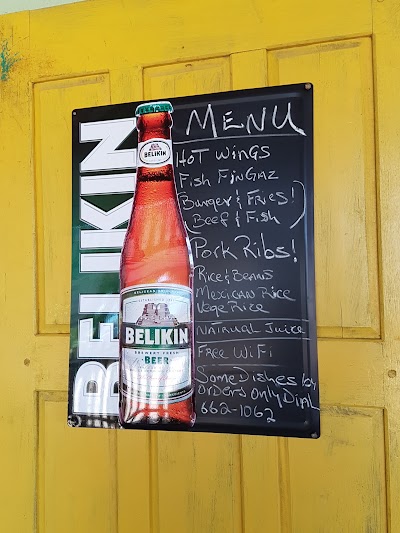 BELIKIN
BELIKIN
BELIKIN
BREWERY-FRESH
BEER
MENU
HOT WINGS
Fish FinGaz
Burger & Fries!
(Beef & Fish)
Pork Ribs!
Rice & Beans
Mexican Rice
Vege Rice
Natural Juice
Free WiFi
Some Dishes by
orders Only Dial
662-1062